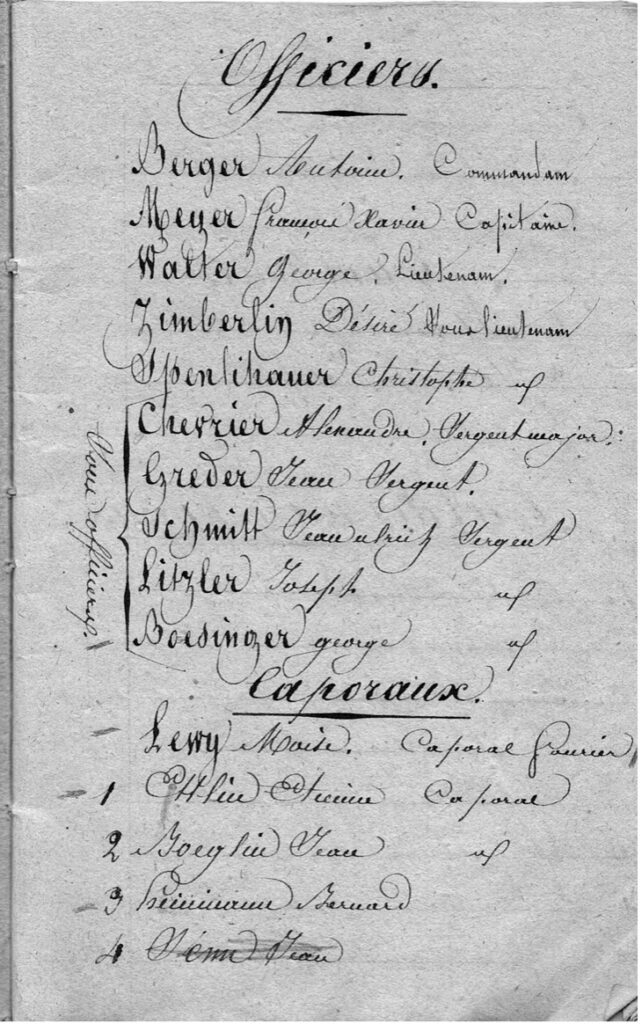 Officiers.
Berger Antoine. Commandant
Meyer François Xavier Capitaine.
Walter George. Lieutenant.
Zimberlin Désiré Sous lieutenant
Spenlihauer Christophe id
Sous officiers.
Chevrier Alexandre. Sergent major.
Greder Jean Sergent.
Schmitt Jean ulrich Sergent
Litzler Joseph id
Boesinger george id
Caporaux.
Lewy Moise. Caporal fourier
1 Ettlin Etienne Caporal
2 Boeglin Jean id
3 heinimann Bernard
4 Jean